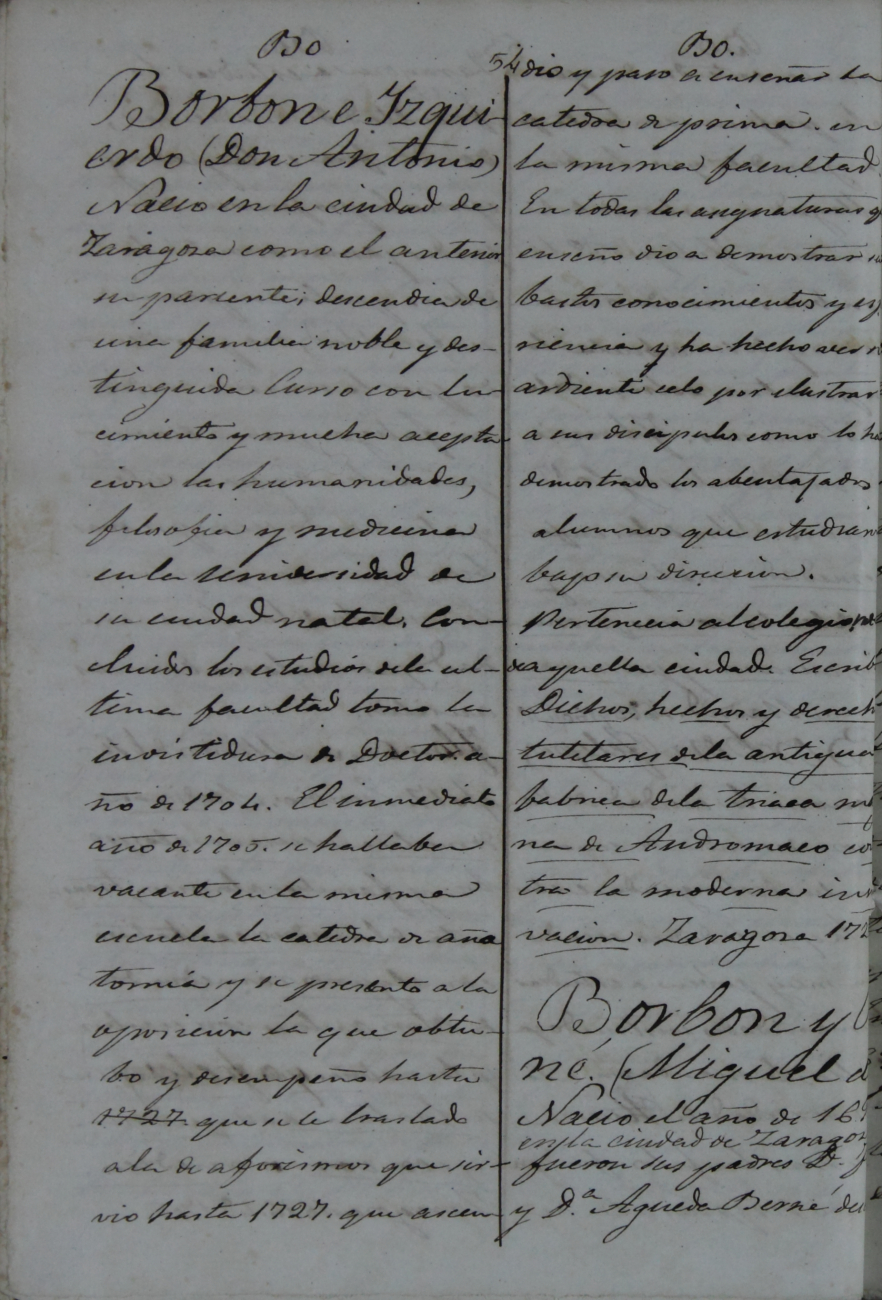 Bo
Borbon e Izqui-
erdo (Don Antonio)
Nacio en la ciudad de
Zaragoza como el anterior
su pariente; descendia de
una familia noble y des-
tinguida Curso con lu-
cimiento y mucha acepta-
cion las humanidades,
filosofia y medicina
en la universidad de
su ciudad natal. Con-
cluidos los estudios dela ul-
tima facultad tomo la
invistidura de Doctor a-
ño de 1704. El inmediato
año de 1705. se hallaba
vacante en la misma
escuela la catedra de ana
tomia y se presento a la
oposicion la que obtu-
bo y desempeño hasta
1727 que se le traslado
ala de aforismos que sir-
vio hasta 1727. que ascen-
54
Bo.
dio y paso a enseñar la
catedra de prima. en
la misma facultad
En todas las asignaturas q
enseño dio a demostrar su
bastos conocimientos y es
riencia y ha hecho ver s
ardiente celo por ilustrar
a sus discipulos como lo ha
demostrado los abentajados
alumnos que estudiaro
bajo su direccion.
Pertenecia al colegio
de aquella ciudad. Escrib
Dichos, hechos y derech
tutitares dela antigua
fabrica dela triaca m
na de Andromaco co
tra la moderna in
vacion. Zaragoza 172
Borbon y B
né. (Miguel d
Nacio el año de 16
en la ciudad de Zaragoz
fueron sus padres D.
y D.ª Agueda Berné del